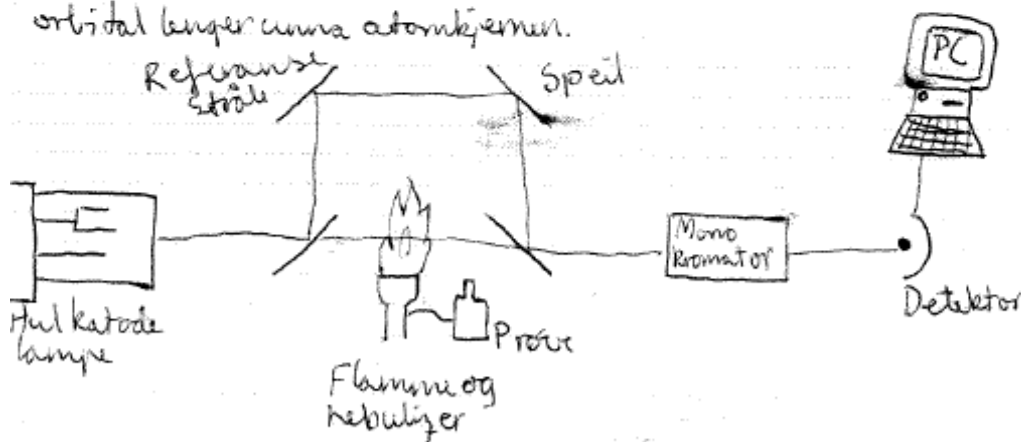 orbital lenger unna atomkjernen.
Referanse
stråle
Speil
PC
Mono
kromator
Detektor
Hul katode
lampe
Prøve
Flamme og
nebulizer